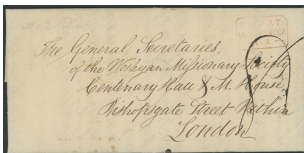 The General Secretaries,
of the Wesleyan Missionary Society
Centenary Hall & M. House,
Bishopsgate Street Within
London